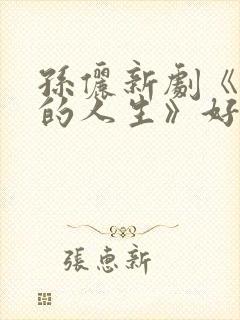 孫儷新劇《
的人生》好
張惠新